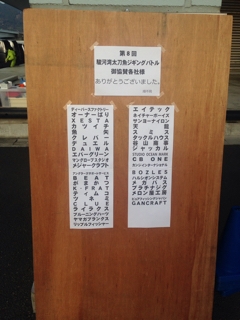 第8回
駿河湾太刀魚ジギングバトル
御協賛各社様
ありがとうございました。
ディーパースファクトリー
オーナーばり
XESTA
カツイチ
魚矢
クレバー
デュエル
DAIWA
エバーグリーン
ヤマシタ
メジャークラフト
BEAT
がまかつ
K-FLAT
ティムコ
ツネミ
CLUE
ライラクス
ブルーニングハーツ
ヤマガブランクス
リップルフィッシャー
エイテック
ネイチャーボーイズ
サンヨーナイロン
天龍
スミス
タックルハウス
谷山商事
ジャッカル
STUDIO OCEAN MARK
CB ONE
ROZLES
ハルシオンシステム
メガバス
プラチナジグ
メロン屋工房
GANCRAFT